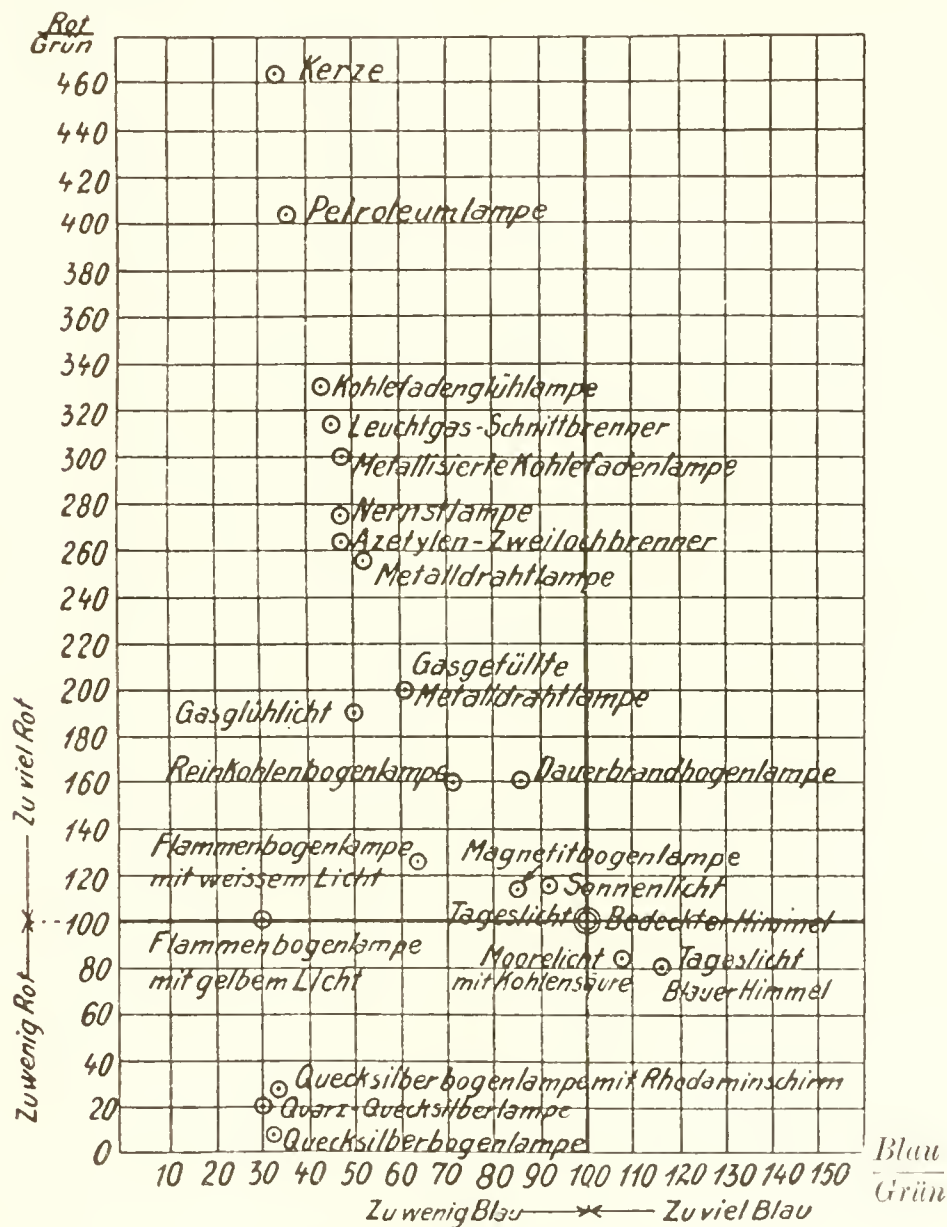 Rot
Grün
460
440
420
400
380
360
340
320
300
280
260
240
220
200
180
160
140
120
100
80
60
40
20
0
Kerze
Petroleumlampe
Kohlefadenglühlampe
Leuchtgas-Schnittbrenner
Metallisierte Kohlefadenlampe
Nernstlampe
Azetylen-Zweilochbrenner
Metalldrahtlampe
Gasgefüllte
Metalldrahtlampe
Gasglühlicht
Reinkohlenbogenlampe
Dauerbrandbogenlampe
Flammenbogenlampe
mit weissem Licht
Magnetitbogenlampe
Sonnenlicht
Tageslicht
Bedeckter Himmel
Flammenbogenlampe
mit gelbem Licht
Moorelicht
mit Kohlensäure
Tageslicht
Blauer Himmel
Quecksilberbogenlampe mit Rhodaminschirm
Quarz-Quecksilberlampe
Quecksilberbogenlampe
Zu wenig Rot
Zu viel Rot
10 20 30 40 50 60 70 80 90 100 110 120 130 140 150
Blau
Grün
Zu wenig Blau
Zu viel Blau